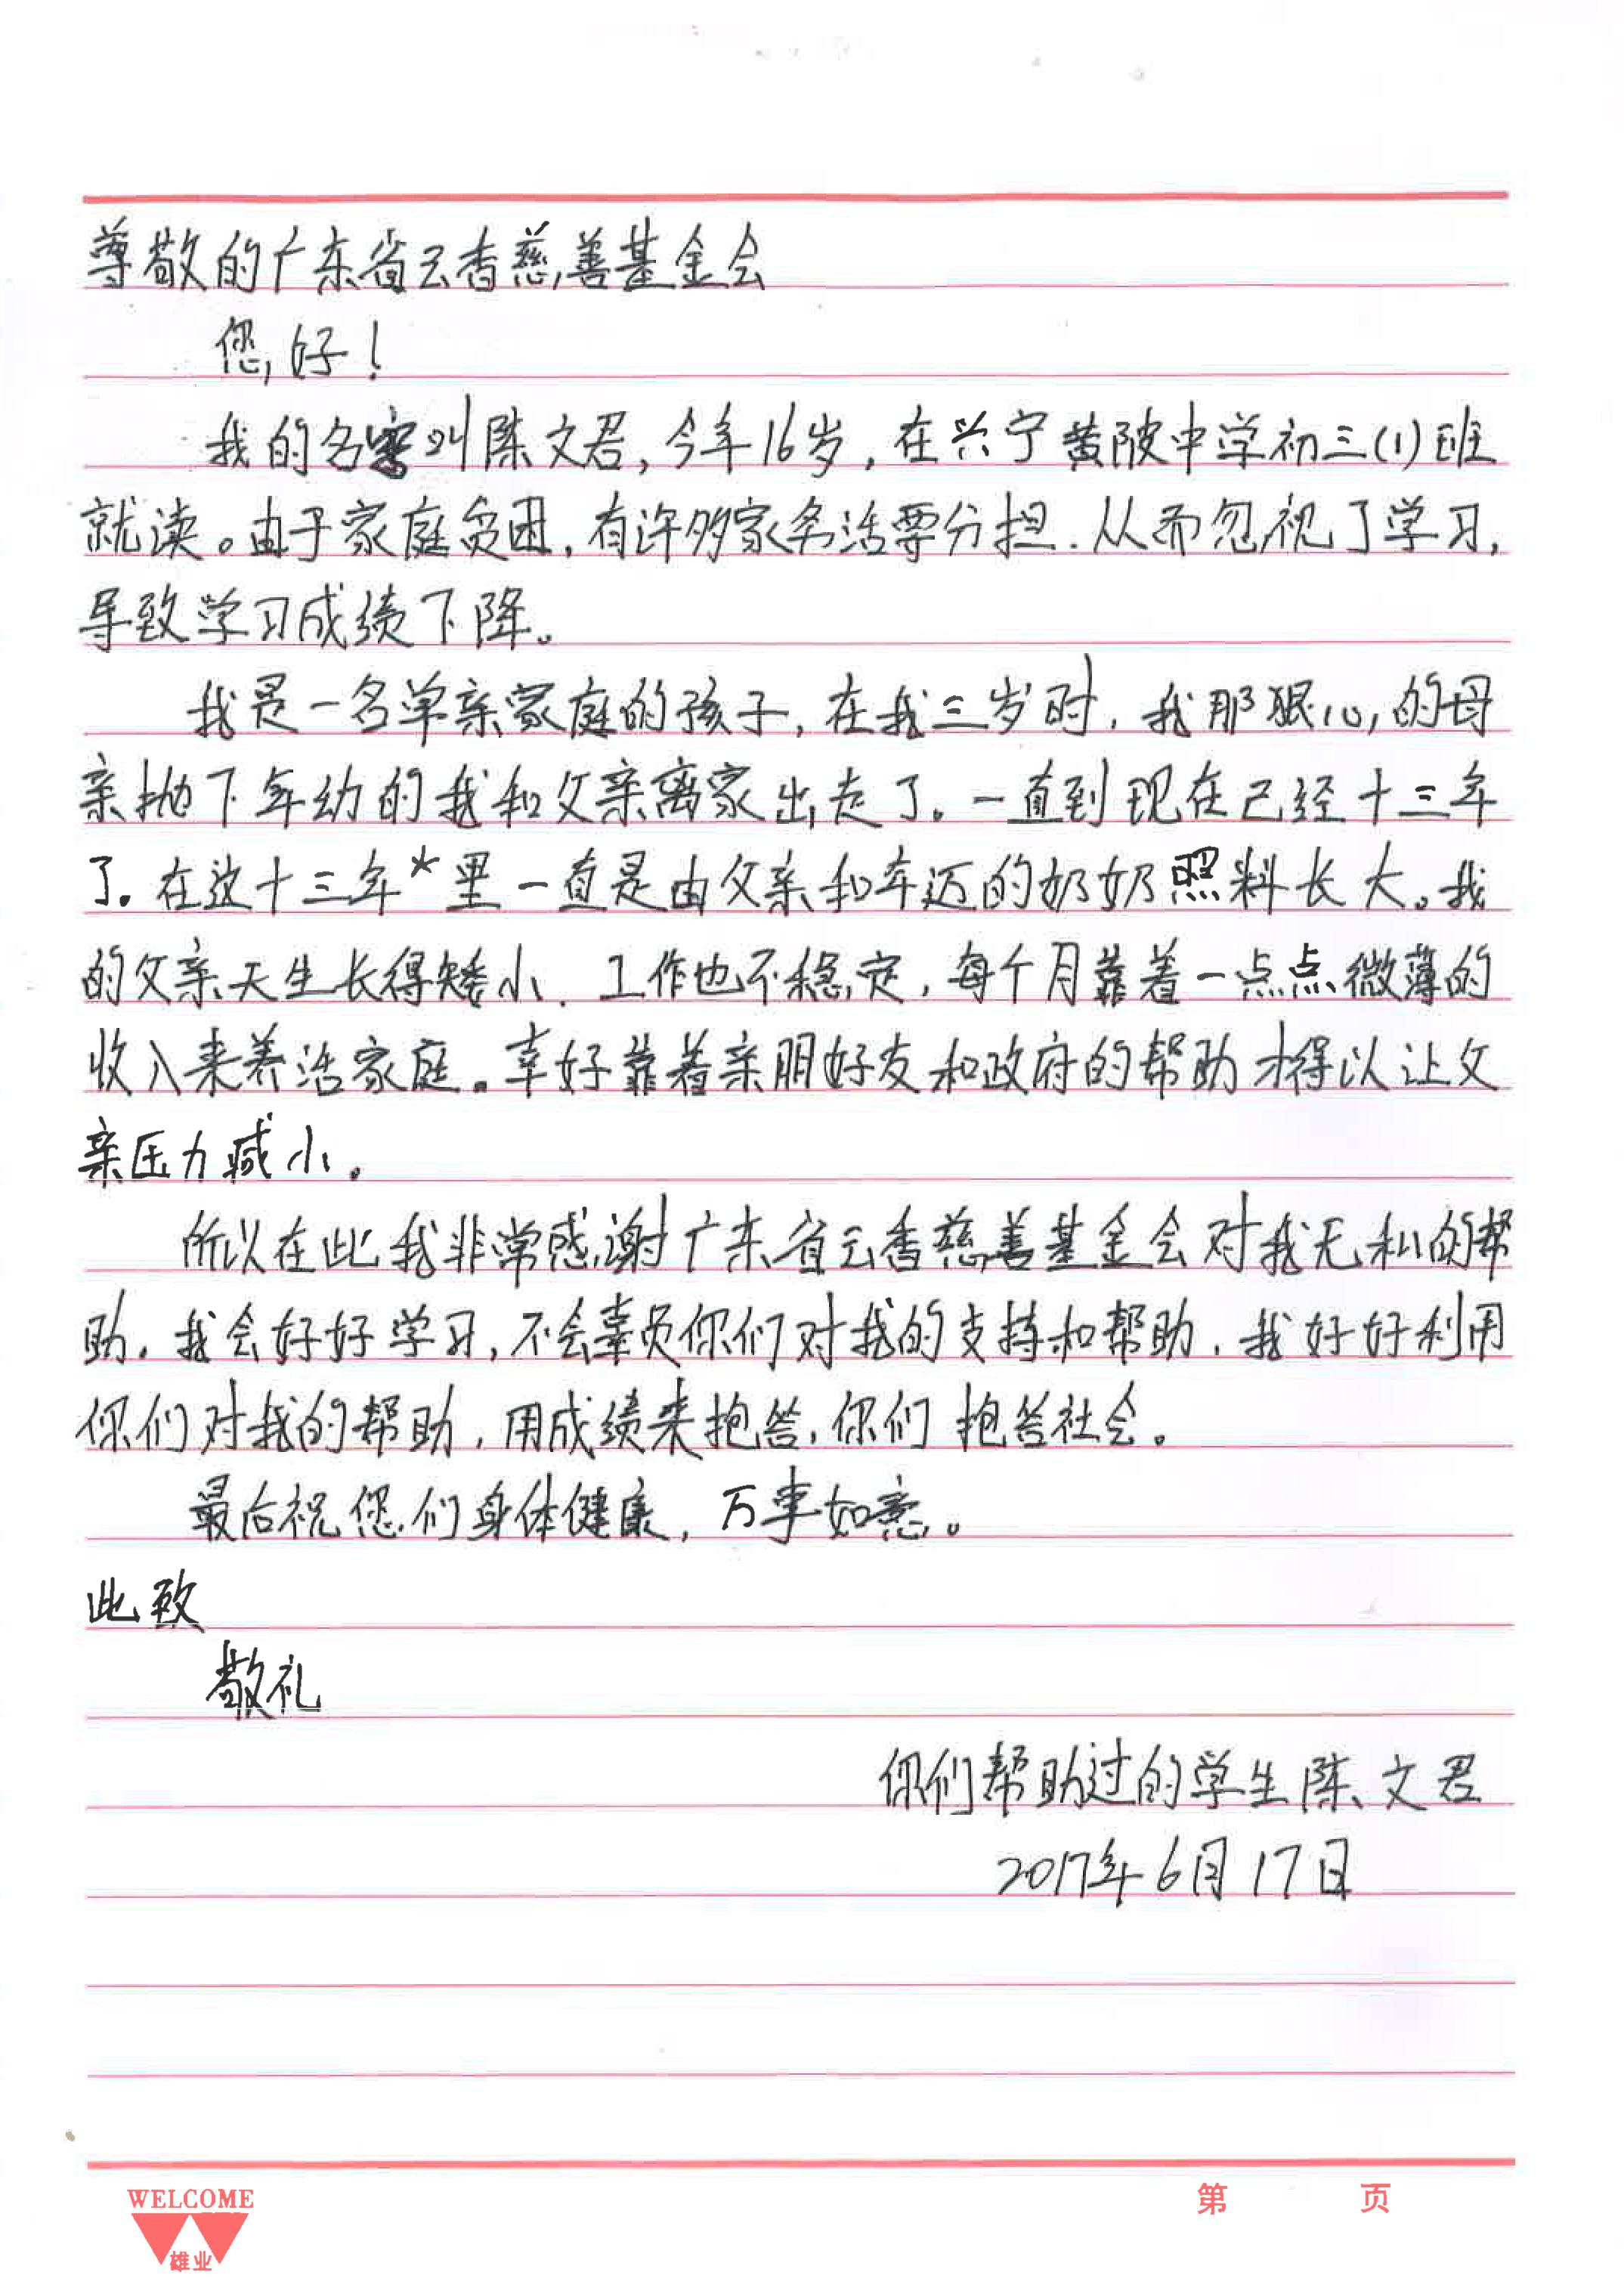 尊敬的广东省云香慈善基金会
您好！
我的名字叫陈文君，今年16岁，在兴宁黄陂中学初三(1)班
就读。由于家庭贫困，有许多家务活要分担．从而忽视了学习，
导致学习成绩下降。
我是一名单亲家庭的孩子，在我三岁时，我那狠心的母
亲抛下年幼的我和父亲离家出走了。一直到现在已经十三年
了．在这十三年*里一直是由父亲和年迈的奶奶照料长大。我
的父亲天生长得矮小．工作也不稳定，每个月靠着一点点微薄的
收入来养活家庭。幸好靠着亲朋好友和政府的帮助才得以让父
亲压力减小。
所以在此我非常感谢广东省云香慈善基金会对我无私的帮
助．我会好好学习，不会辜负你们对我的支持和帮助，我好好利用
你们对我的帮助，用成绩来抱答，你们 抱答社会。
最后祝您们身体健康，万事如意。
此致
敬礼
你们帮助过的学生陈文君
2017年6月17日
WELCOME
雄业
第 页